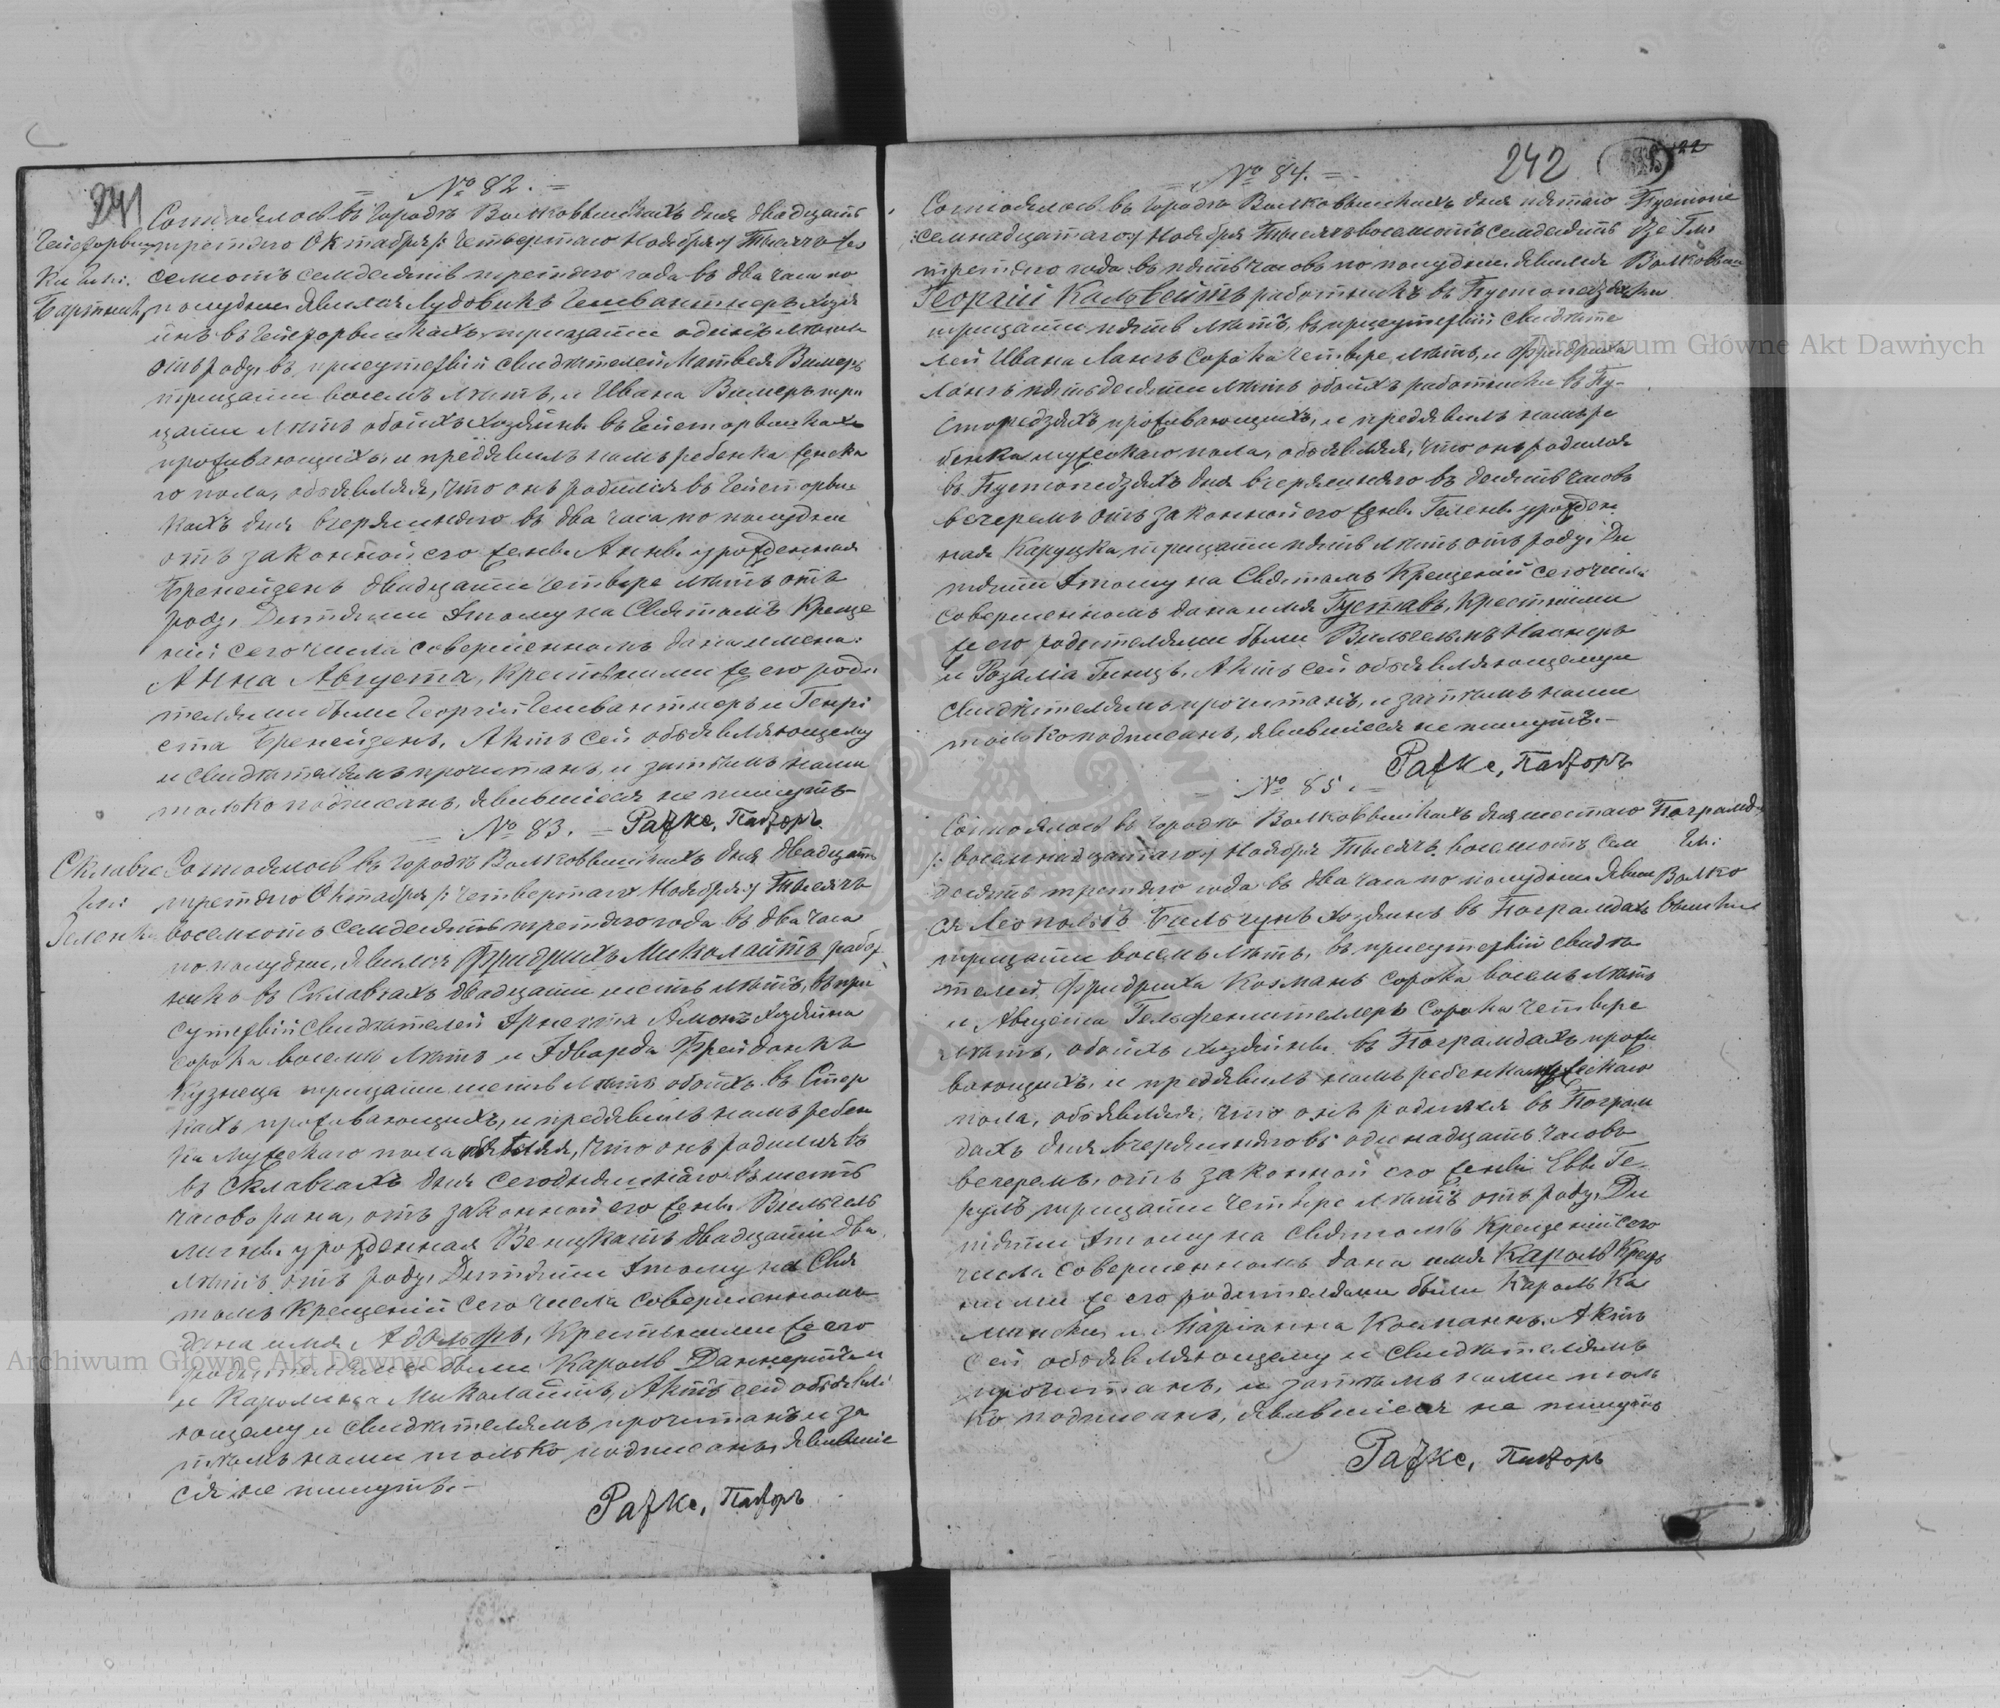 241
№ 82.
Состоялось въ городѣ Волковышкахъ дня двадцать
третяго Октября /: четвертаго Ноября :/ Тысяча во
семсотъ семдесятъ третяго года въ два часа по
Гейсторвиш
ки гм:
полудни явился Лудовикъ Гешвантнеръ хозя
инъ въ Гейсторвишкахъ, тридцати одинъ лѣтъ
отъ роду, въ присутствіи свидѣтелей Матвея Вимеръ
тридцати восемь лѣтъ, и Ивана Вимеръ три
дцати лѣтъ обоихъ хозяинъ въ Гейсторвишкахъ
проживающихъ, и предъявилъ намъ ребенка женска
го пола, объявляя, что онъ родился въ Гейсторвиш
кахъ дня вчерашняго въ два часа по полудни
отъ законной его жены Анны урожденная
Бренейзенъ двадцати четыре лѣтъ отъ
роду, Дитяти этому на Святомъ Креще
ніи сего числа совершенномъ дана имена:
Анна Августа, Крестными же его роди
телями были Георгій Гешвантнеръ и Генрі
ета Бренейзенъ, Актъ сей объявляющему
и свидѣтелямъ прочитанъ, и затѣмъ нами
только подписанъ, явившіеся не пишутъ
Ражке, Пасторъ
№ 83.
Склавсе
гм:
Состоялось въ городѣ Волковышкахъ дня двадцать
третяго Октября /: четвертаго Ноября :/ Тысяча
восемсотъ семдесятъ третяго года въ два часа
по полудни, явился Фридрихъ Миколайтъ работ
никъ въ Склавсахъ двадцати шесть лѣтъ, въ при
сутствіи свидѣтелей Эрнеста Лимонъ хозяина
сорока восемь лѣтъ и Эдварда Фрейданкъ
Кузнеца тридцати шесть лѣтъ обоихъ въ Стер
кахъ проживающихъ, и предъявилъ намъ ребен
ка мужескаго пола объявляя, что онъ родился въ
въ Склавсахъ дня сегодняшнаго въ шесть
часовъ рана, отъ законной его жены Вильгель
мины урожденная Венцкатъ двадцати два
лѣтъ отъ роду, Дитяти этому на Свя
томъ Крещеніи сего числа совершенномъ
дана имя Адольфъ, Крестными же его
родителями были Кароль Даннертъ
и Каролина Миколайтъ, Актъ сей объявля
ющему и свидѣтелямъ прочитанъ и за
тѣмъ нами только подписанъ, явившіе
ся не пишутъ.
Ражке, Пасторъ
242
№ 84.
Состоялось въ городѣ Волковышкахъ дня пятаго
/: семнадцатаго :/ Ноября Тысяча восемсотъ семдесятъ
третяго года въ пять часовъ по полудни, явился
Пустопе
дзе Гм:
Волковыш
Георгій Кальвейтъ работникъ въ Пустопедзяхъ
тридцати пять лѣтъ, въ присутствіи Свидѣте
лей Ивана Лангъ сорока четыре лѣтъ, и Фридриха
Лангъ пятьдесяти лѣтъ обоихъ работники въ Пу-
стопедзяхъ проживающихъ, и предъявилъ намъ ре
бенка мужескаго пола, объявляя, что онъ родился
въ Пустопедзяхъ дня вчерашняго въ десять часовъ
вечеремъ отъ законной его жены Гелены урожден
ная Каруцка, тридцати пять лѣтъ отъ роду, Ди
тяти этому на Святомъ Крещеніи сего числа
совершенномъ дана имя Густавъ, Крестными
же его родителями были Вильгельмъ Нагнеръ
и Розалія Гинцъ, Актъ сей объявляющему и
свидѣтелямъ прочитанъ, и затѣмъ нами
только подписанъ, явившіеся не пишутъ.
Ражке, Пасторъ
№ 85.
Состоялось въ городѣ Волковышкахъ дня шестаго
/: восемнадцатаго :/ Ноября Тысяча восемсотъ сем
десятъ третяго года въ два часа по полудни явил
Пограмд
гм:
Волко
вышки
ся Леопольдъ Бильгунъ хозяинъ въ Пограмдахъ
тридцати восемь лѣтъ, въ присутствіи свидѣ
телей Фридриха Козманъ сорока восемь лѣтъ
и Августа Гельфенштеллеръ сорока четыре
лѣтъ, обоихъ хозяйны въ Пограмдахъ прожи
вающихъ, и предъявилъ намъ ребенка мужескаго
пола, объявляя, что онъ родился въ Пограм
дахъ дня вчерашняго въ одинадцать часовъ
вечеремъ, отъ законной его жены Евы Ге-
рулъ тридцати четыре лѣтъ отъ роду, Ди
тяти этому на Святомъ Крещеніи сего
числа совершенномъ дана имя Кароль Крест
ными же его родителями были Кароль Ка
минскій и Маріанна Косманнъ, Актъ
сей объявляющему и свидѣтелямъ
прочитанъ, и затѣмъ нами толь
ко подписанъ, явившіеся не пишутъ
Ражке, Пасторъ
Archiwum Główne Akt Dawnych
Archiwum Główne Akt Dawnych